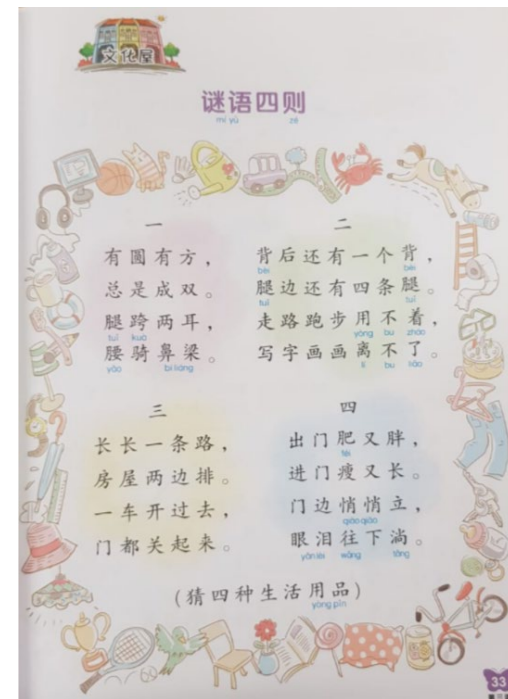 文化屋
谜语四则
mí yǔ zé
一
有圆有方，
总是成双。
腿跨两耳，
tuǐ kuà
腰骑鼻梁。
yāo bí liáng
二
背后还有一个背，
bèi bèi
腿边还有四条腿。
tuǐ tuǐ
走路跑步用不着，
yòng bu zháo
写字画画离不了。
lí bu liǎo
三
长长一条路，
房屋两边排。
一车开过去，
门都关起来。
四
出门肥又胖，
féi
进门瘦又长。
门边悄悄立，
qiāo qiāo
眼泪往下淌。
yǎn lèi wǎng tǎng
(猜四种生活用品)
yòng pǐn
33